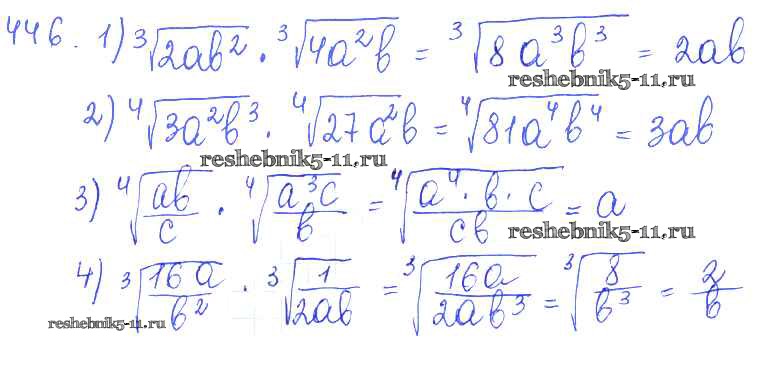 446. 1) ∛(2ab²) · ∛(4a²b) = ∛(8a³b³) = 2ab
reshebnik5-11.ru
2) ⁴√(3a²b³) · ⁴√(27a²b) = ⁴√(81a⁴b⁴) = 3ab
reshebnik5-11.ru
3) ⁴√(ab/c) · ⁴√(a³c/b) = ⁴√(a⁴·b·c/cb) = a
reshebnik5-11.ru
4) ∛(16a/b²) · ∛(1/2ab) = ∛(16a/2ab³) = ∛(8/b³) = 2/b
reshebnik5-11.ru